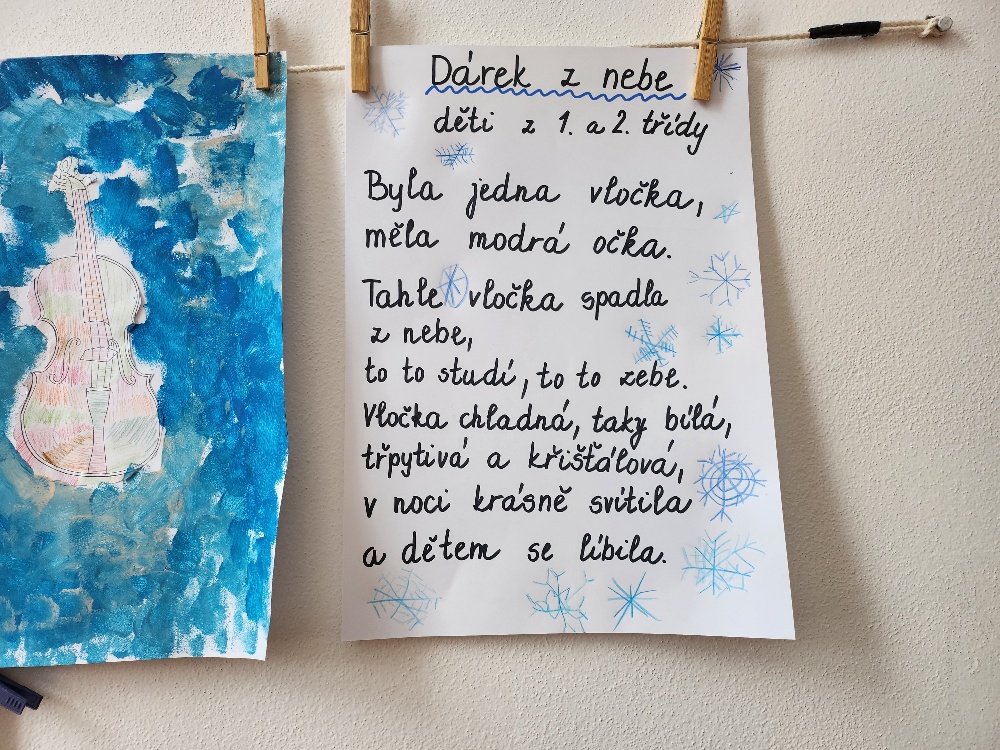 Dárek z nebe
děti z 1. a 2. třídy
Byla jedna vločka,
měla modrá očka.
Tahle vločka spadla
z nebe,
to to studí, to to zebe.
Vločka chladná, taky bílá,
třpytivá a křišťálová,
v noci krásně svítila
a dětem se líbila.